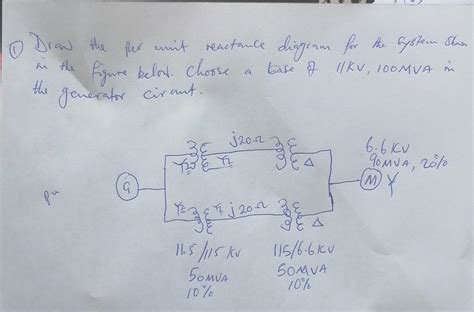 ① Draw the per unit reactance diagram for the system shown
in the figure below. Choose a base of 11KV, 100MVA in
the generator circuit.
j20Ω
6.6 KV
90MVA, 20%
Δ
G
M
pu
j20Ω
Δ
11.5/115 KV
115/6.6KV
50MVA
50MVA
10%
10%